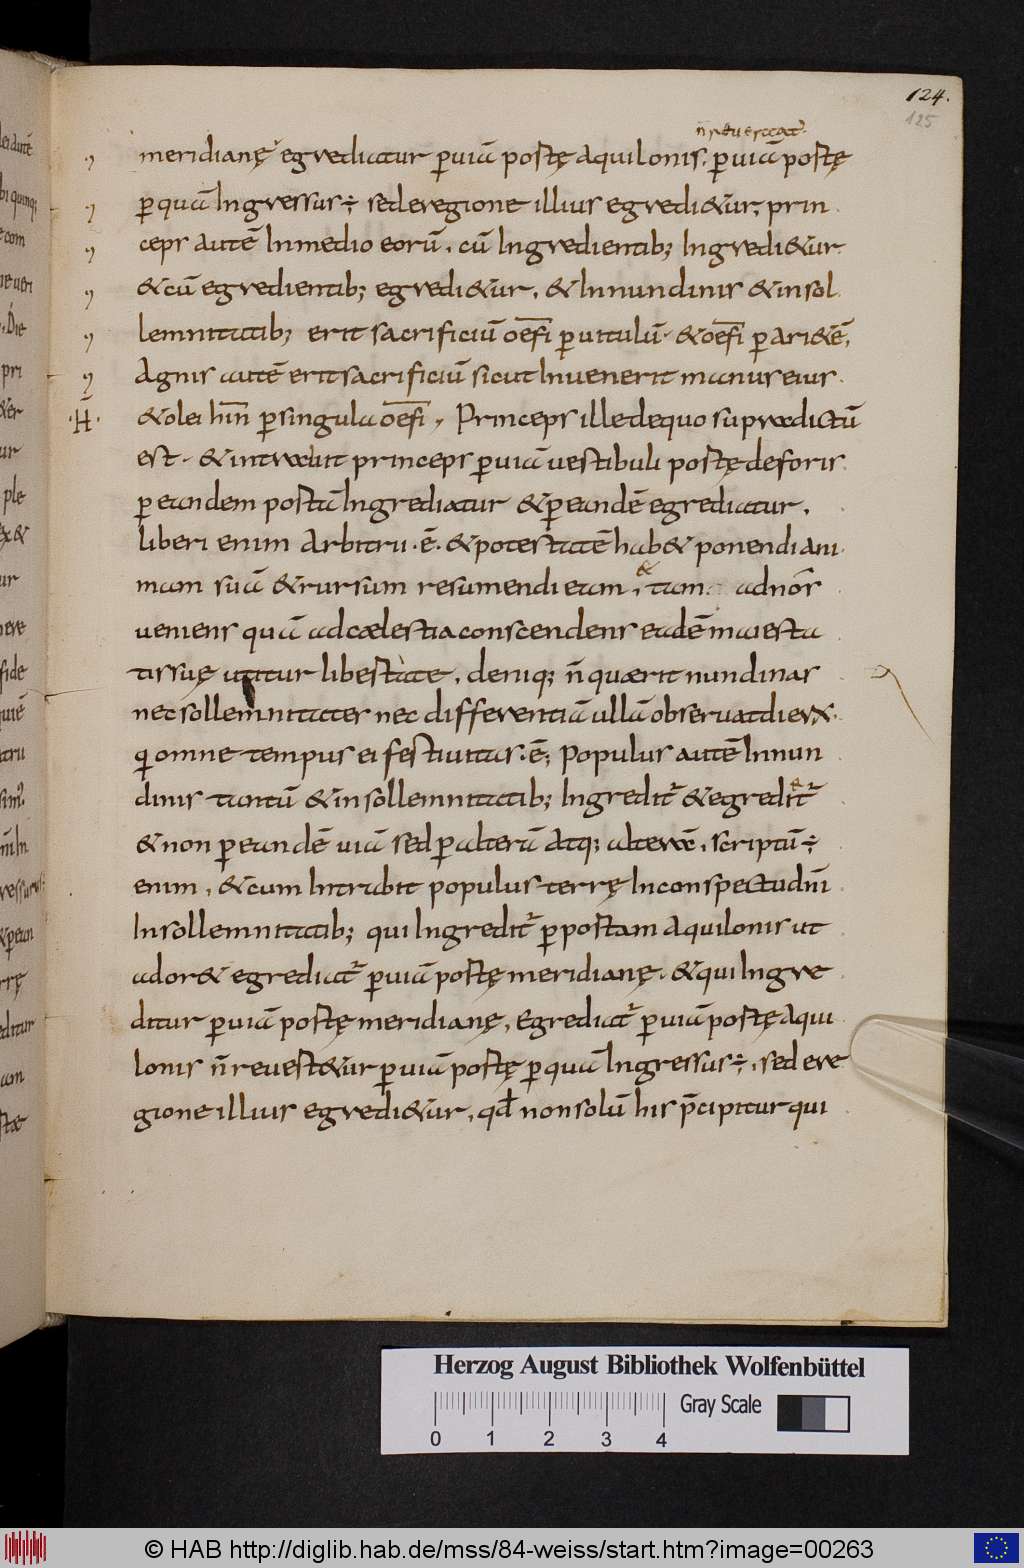 124.
125
n̄ reuertat̄
meridianę egrediatur ꝑ uiā portę aquilonis; ꝑ uiā portę
ꝑ quā Ingressus ÷ sed e regione illius egredi&ur; prin
ceps autē In medio eorū. cū Ingredientib; Ingredi&ur
& cū egredientib; egredi&ur. & In nundinis & in sol
lemnitatib; erit sacrificiū oefi ꝑ uitulū. & oefi ꝑ ari&ē.
Agnis autē erit sacrificiū sicut Inuenerit manus eius
.H. & olei hin ꝑ singula oefi, Princeps ille de quo supra dictū
est. & intrabit princeps ꝑ uiā uestibuli portę deforis
ꝑ eandem portā Ingrediatur & ꝑ eandē egrediatur.
liberi enim arbitrii .ē. & potestatē hab& ponendi ani
mam suā & rursum resumendi eam, & tam ad nos
ueniens quā ad cælestia conscendens eadē maiesta
tis suę utitur libertate. deniq; n̄ quærit nundinas
nec sollemnitates nec differentiā ullā obseruat dierum.
qi omne tempus ei festiuitas .ē; Populus autē In nun
dinis tantū & in sollemnitatib; Ingredit̄ & egredit̄
& non ꝑ eandē uiā sed ꝑ alterā atq; alterā. scriptū ÷
enim, & cum Intrabit populus terrę In conspectu dn̄i
In sollemnitatib; qui Ingredit̄ ꝑ portam aquilonis ut
ador& egrediat̄ ꝑ uiā portę meridianę. & qui Ingre
ditur ꝑ uiā portę meridianę, egrediat̄ ꝑ uiā portę aqui
lonis n̄ reuert&ur ꝑ uiā portę ꝑ quā Ingressus ÷, sed e re
gione illius egredi&ur, qd̄ non solū his p̄cipitur qui
Herzog August Bibliothek Wolfenbüttel
Gray Scale
0 1 2 3 4
© HAB http://diglib.hab.de/mss/84-weiss/start.htm?image=00263